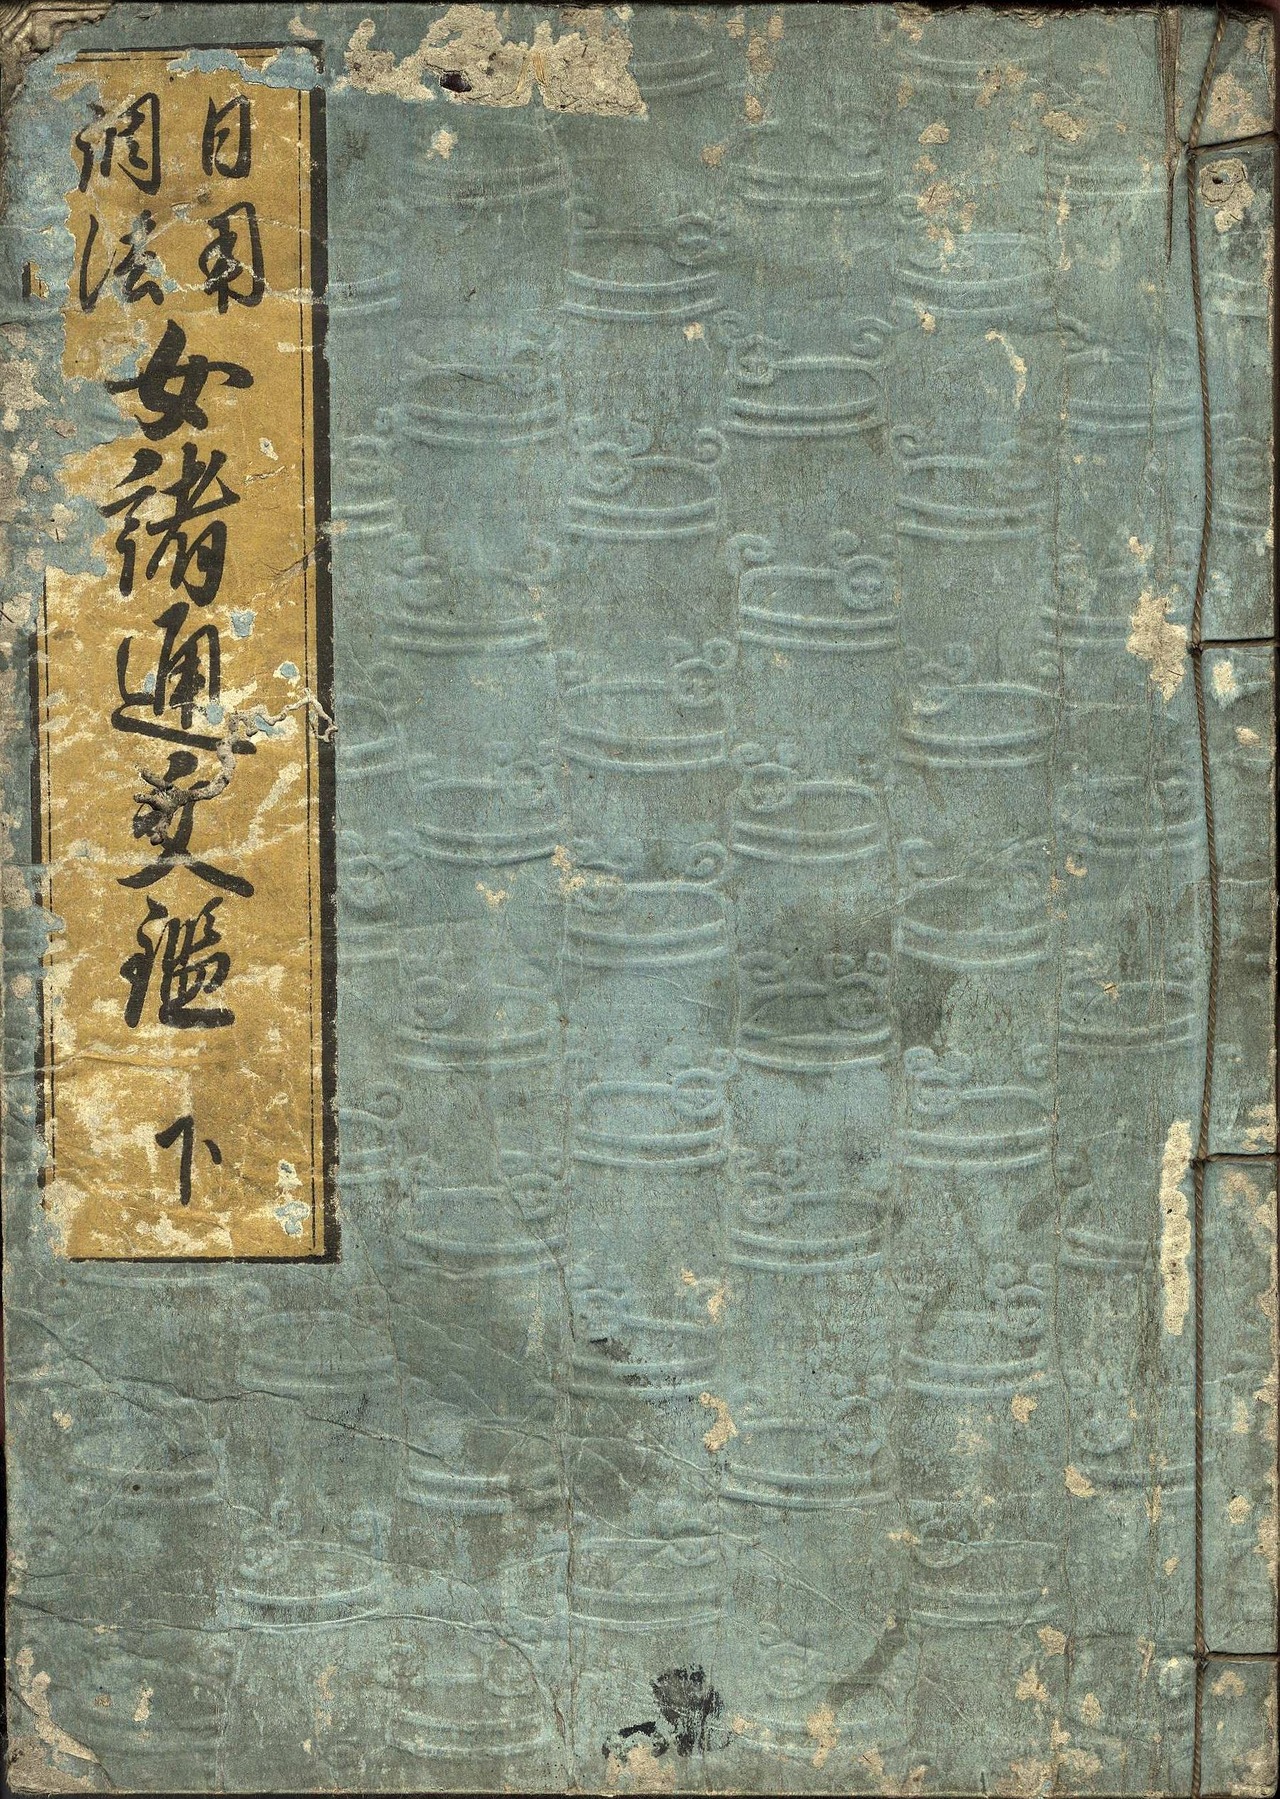 日用
調法
女諸通鑑 下